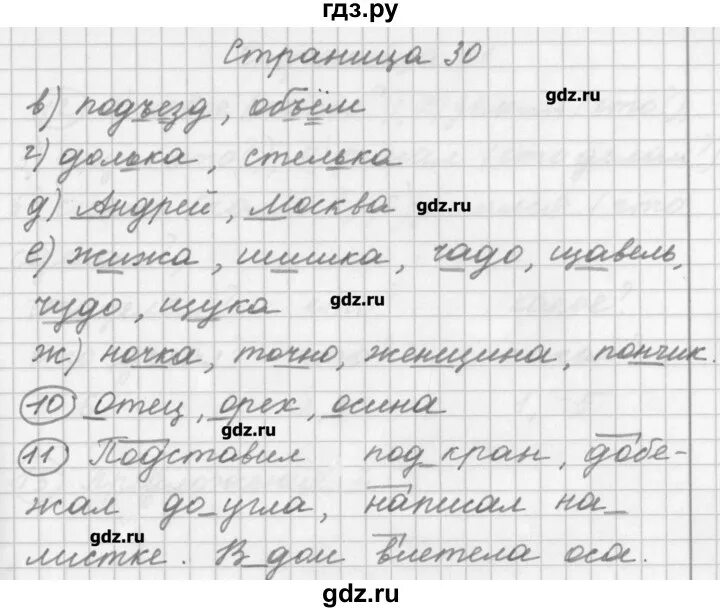 гдз.ру
Страница 30
в) подъезд, объём
gdz.ru
г) долька, стелька
д) Андрей, Москва
gdz.ru
е) жижа, шишка, чадо, щавель,
чудо, щука
gdz.ru
ж) ночка, точно, женщина, пончик.
10 отец, орех, осина
gdz.ru
11 Подставил под_кран, добе-
жал до_угла, написал на_
gdz.ru
листке. В_дом влетела оса.
gdz.ru